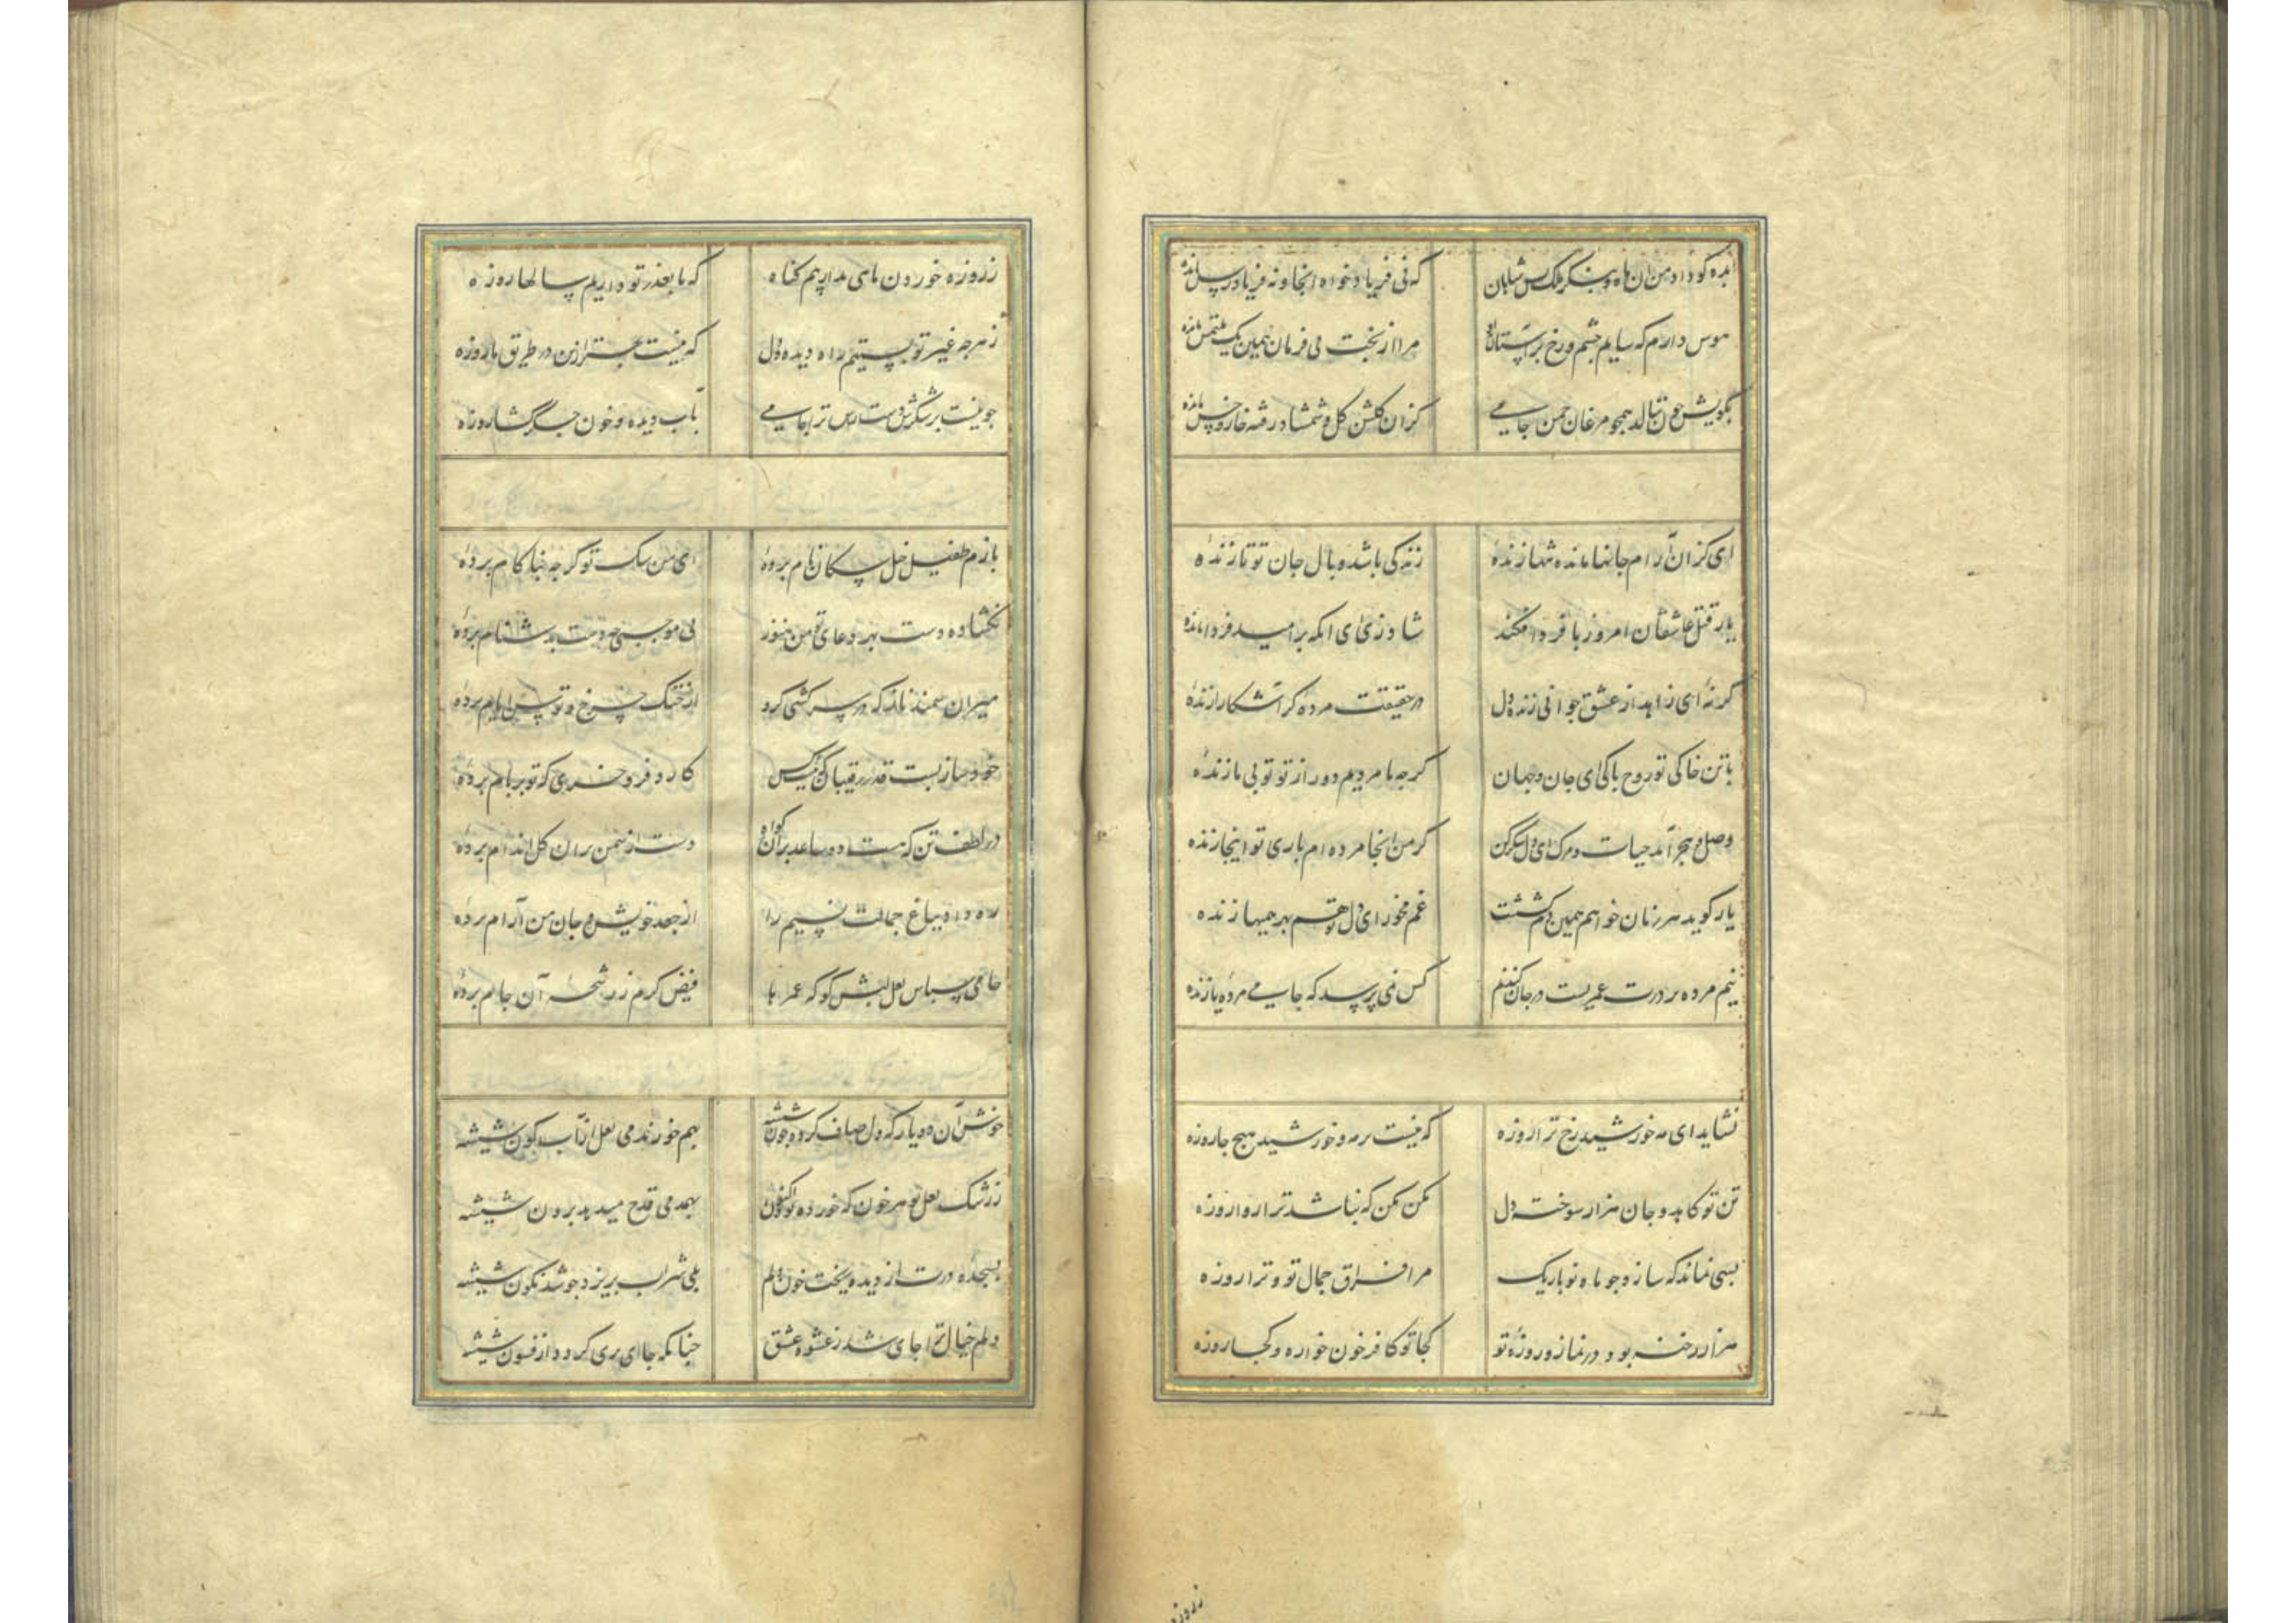 که نی فریادخواه آنجا و نه فریادرس مانده
هوس دارم که سایم چشم و رخ بر آستان او مرا از بخت بی فرمان همین یک ملتمس مانده
بگویش چون ننالد همچو مرغان چمن جامی کزان گلشن گل و شمشاد رفته خار و خس مانده
ای کز آن آرام جانها مانده تنها زنده زندگی باشد وبال جان تو تا زنده
یار قتل عاشقان امروز با فردا فکند شاد زی ای آنکه بر امید فردا مانده
گر نه ای زاهد از عشق جوانی زنده دل در حقیقت مرده گر آشکارا زنده
با تن خاکی تو روح پاکی ای جان و جهان گرچه ما مردیم دور از تو تو بی ما زنده
وصل و هجر آمد حیات و مرگ ای دل شکر کن گر من اینجا مرده ام باری تو آنجا زنده
یار گوید هر زمان خواهم همین دم کشت غم مخور ای دل تو هم بهر همینها زنده
نیم مرده بر درت عمریست در جان کندنم کس نمی پرسد که جامی مرده یا زنده
نشاید ای مه خورشید رخ ترا روزه که نیست بر مه و خورشید هیچ جا روزه
تن تو کاهد و جان هزار سوخته دل مکن مکن که نباشد ترا روا روزه
بسی نماند که سازد چو ماه نو باریک مرا فراق جمال تو و ترا روزه
هزار رخنه بود در نماز و روزه تو کجا تو کافر خون خواره و کجا روزه
ز روزه
ز روزه خوردن ماهی مداریم گناه که ما بعذر تو داریم سالها روزه
ز هرچه غیر تو بستیم راه دیده و دل که نیست بهتر ازین در طریق ما روزه
چو نیست بر شکرش دست رس ترا جامی بآب دیده و خون جگر گشا روزه
بازم طفیل خیل سگان نام برده ای من سگ تو گرچه بناکام برده
نگشاده دست بهر دعای تو من هنوز بی موجبی چه دست بدشنام برده
میران سمند ناز که در سرکشی گرو از خنگ چرخ و توسن ایام برده
خود ساز پست قدر رقیبان که نیست کس کارد فرو خری که تو بر بام برده
در لطف تن که هست دو ساعد بر آن گواه دست از سمن بران گل اندام برده
ره داده بباغ جمالت نسیم را از جعد خویش و جان من آرام برده
جامی سپاس لعل لبش گو که عمرها فیض کرم ز رشحه آن جام برده
خوش آن دو یار که دل صاف کرده چون شیشه بهم خورند می لعل از آبگون شیشه
ز رشک لعل تو هر خون که خورده بود اکنون بهمدمی قدح میدهد برون شیشه
بسجده درت از دیده ریخت خون دلم بلی شراب بریزد چو شد نگون شیشه
دلم خیال ترا جای شد ز عشوه عشق چنانکه جای پری گردد از فسون شیشه